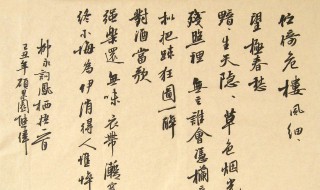 佇倚危樓風細、
望極春愁
黯、生天際草色烟光
殘照裡無言誰會憑欄
拟把疎狂圖一醉
對酒當歌
强樂還無味衣帶漸寬
終不悔為伊消得人憔悴
柳永詞鳳栖梧一首
己丑年